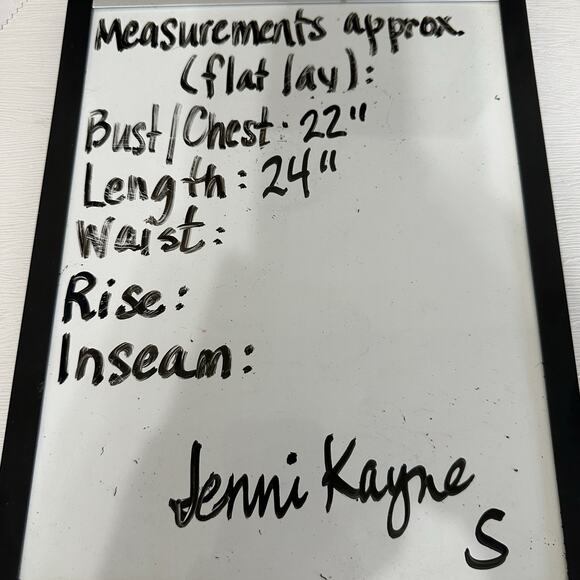 Measurements approx.
(flat lay):
Bust/Chest: 22"
Length: 24"
Waist:
Rise:
Inseam:
Jenni Kayne
S